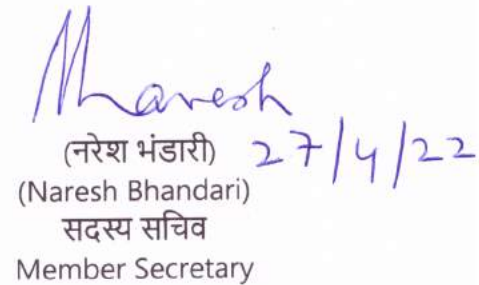 Naresh
(नरेश भंडारी) 27/4/22
(Naresh Bhandari)
सदस्य सचिव
Member Secretary